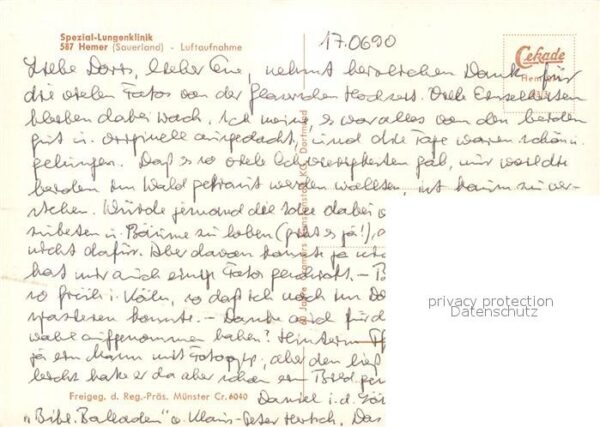 Spezial-Lungenklinik
587 Hemer (Sauerland) - Luftaufnahme
17.0690
Cekade
Heme
Liebe Doris, lieber Uwe, nehmt herzlichen Dank für
die vielen Fotos von der gläsernen Hochzeit. Viele Einzelheiten
bleiben dabei wach. Ich meine, es war alles von den beiden
gut u. originell ausgedacht, und die Tage waren schön u.
gelungen. Daß es so viele Schwierigkeiten gab, nur weil die
beiden im Wald getraut werden wollten, ist kaum zu ver-
stehen. Würde jemand die Idee dabei
anbeten u. Bäume zu loben (gibt es ja!),
nicht dafür. Aber davon konnte ja
hat mir auch einige Fotos geschickt. -
so früh i. Köln, so daß ich noch im Do
spazieren konnte. - Danke auch für d
wohl aufgenommen haben? Hinterm
ja ein Mann mit Fotoapp., aber den ließ
leicht hatte er da aber schon ein Bild
60 Jahre Cramers Kunstanstalt KG, Dortmund
privacy protection
Datenschutz
Freigeg. d. Reg.-Präs. Münster Cr. 6040
Daniel i. d. Lö
"Bibl. Balladen" v. Klaus-Peter Hertzsch. Das